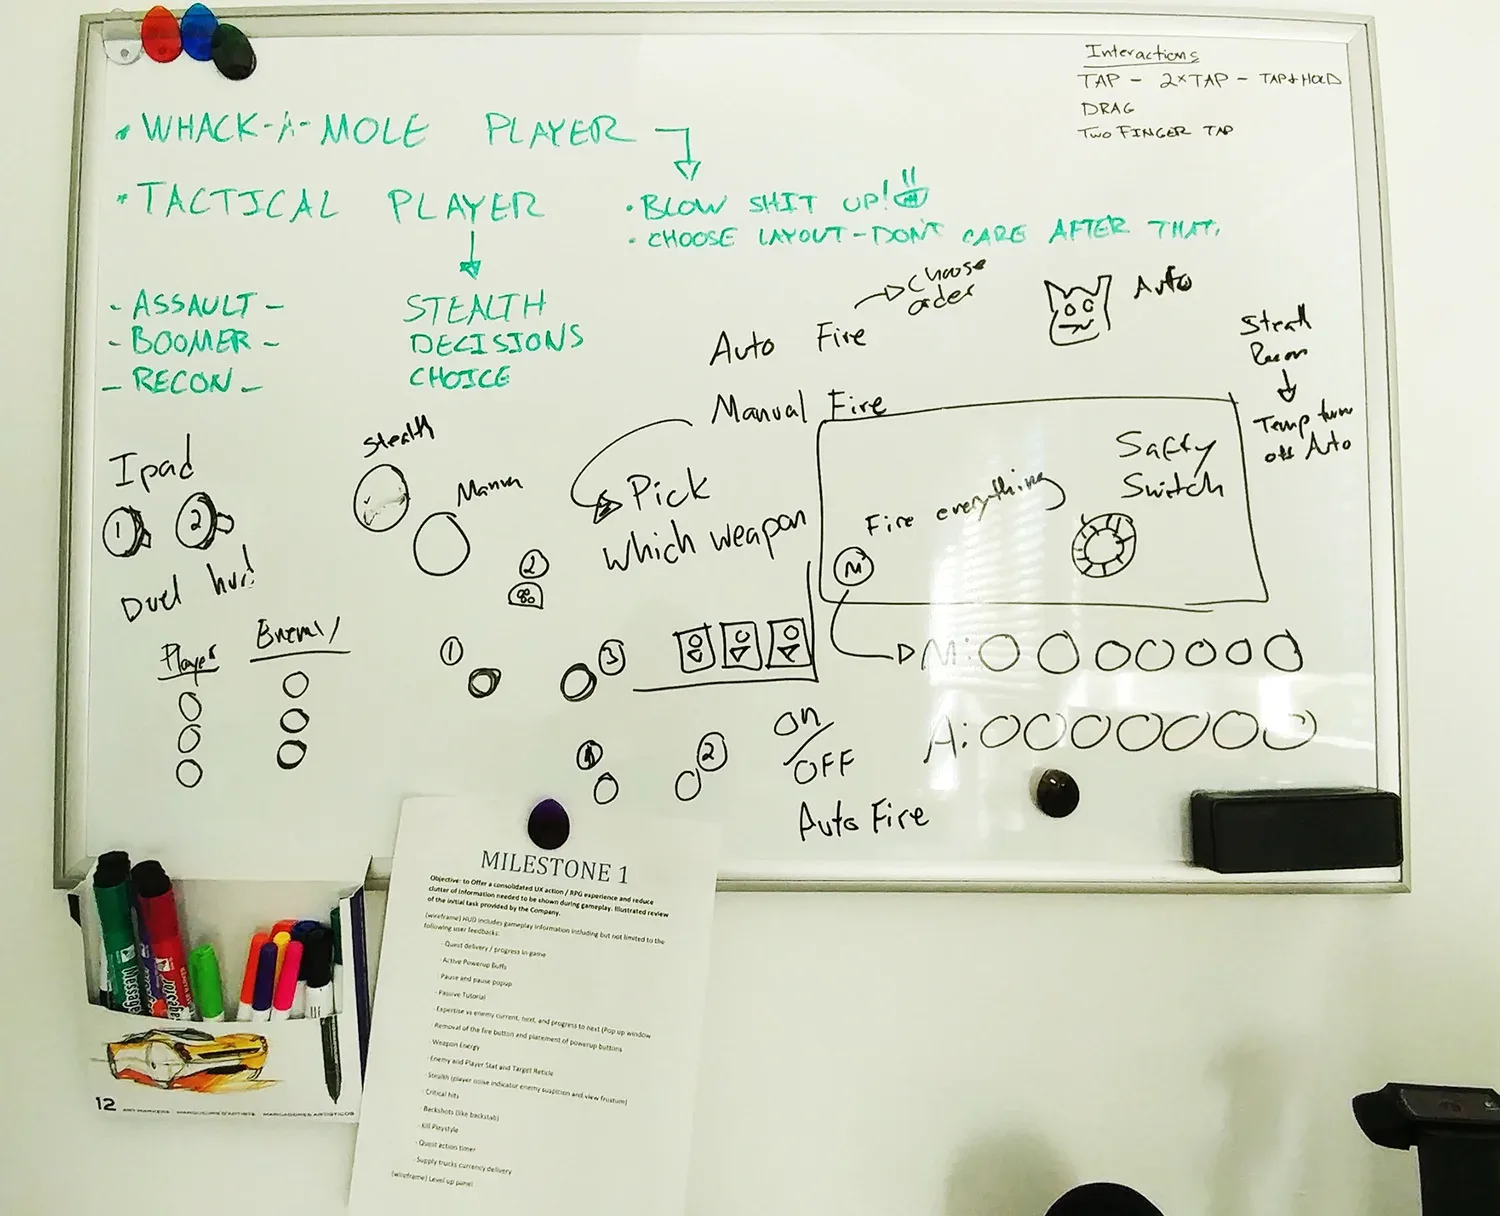 Interactions
TAP - 2xTAP - TAP & HOLD
DRAG
TWO FINGER TAP
• WHACK-A-MOLE PLAYER
• TACTICAL PLAYER
• BLOW SHIT UP!
• CHOOSE LAYOUT - DON'T CARE AFTER THAT.
- ASSAULT -
- BOOMER -
- RECON -
STEALTH
DECISIONS
CHOICE
Auto Fire
Choose
order
Auto
Recon
Temp turn
off Auto
Manual Fire
Pick
Which weapon
Stealth
Ipad
1 2
Duel hud
Player
Enemy
2
1
3
2
Fire everything
Safty
Switch
M
M:
A:
ON
/
OFF
Auto Fire
MILESTONE 1
Objective: to Offer a consolidated UX action / RPG experience and reduce
clutter of information needed to be shown during gameplay. Illustrated review
of the initial task provided by the Company.
(wireframe) HUD includes gameplay information including but not limited to the
following user feedbacks:
- Quest delivery / progress in game
- Active Powerup Buffs
- Pause and pause popup
- Passive Tutorial
- Expertise vs enemy current, next, and progress to next (Pop up window
- Removal of the fire button and placement of powerup buttons
- Weapon Energy
- Enemy and Player Stat and Target Reticle
- Stealth (player noise indicator enemy suspition and view frustum)
- Critical hits
- Backshots (like backstab)
- Kill Playstyle
- Quest action timer
- Supply trucks currency delivery
(wireframe) Level up panel
12 ART MARKERS MARQUEURS D'ARTISTE MARCADORES ARTÍSTICOS